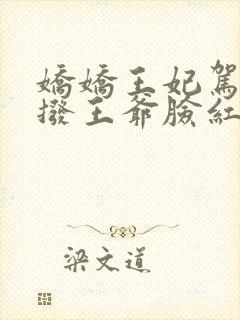 嬌嬌王妃駕
撥王爺臉紅
梁文道